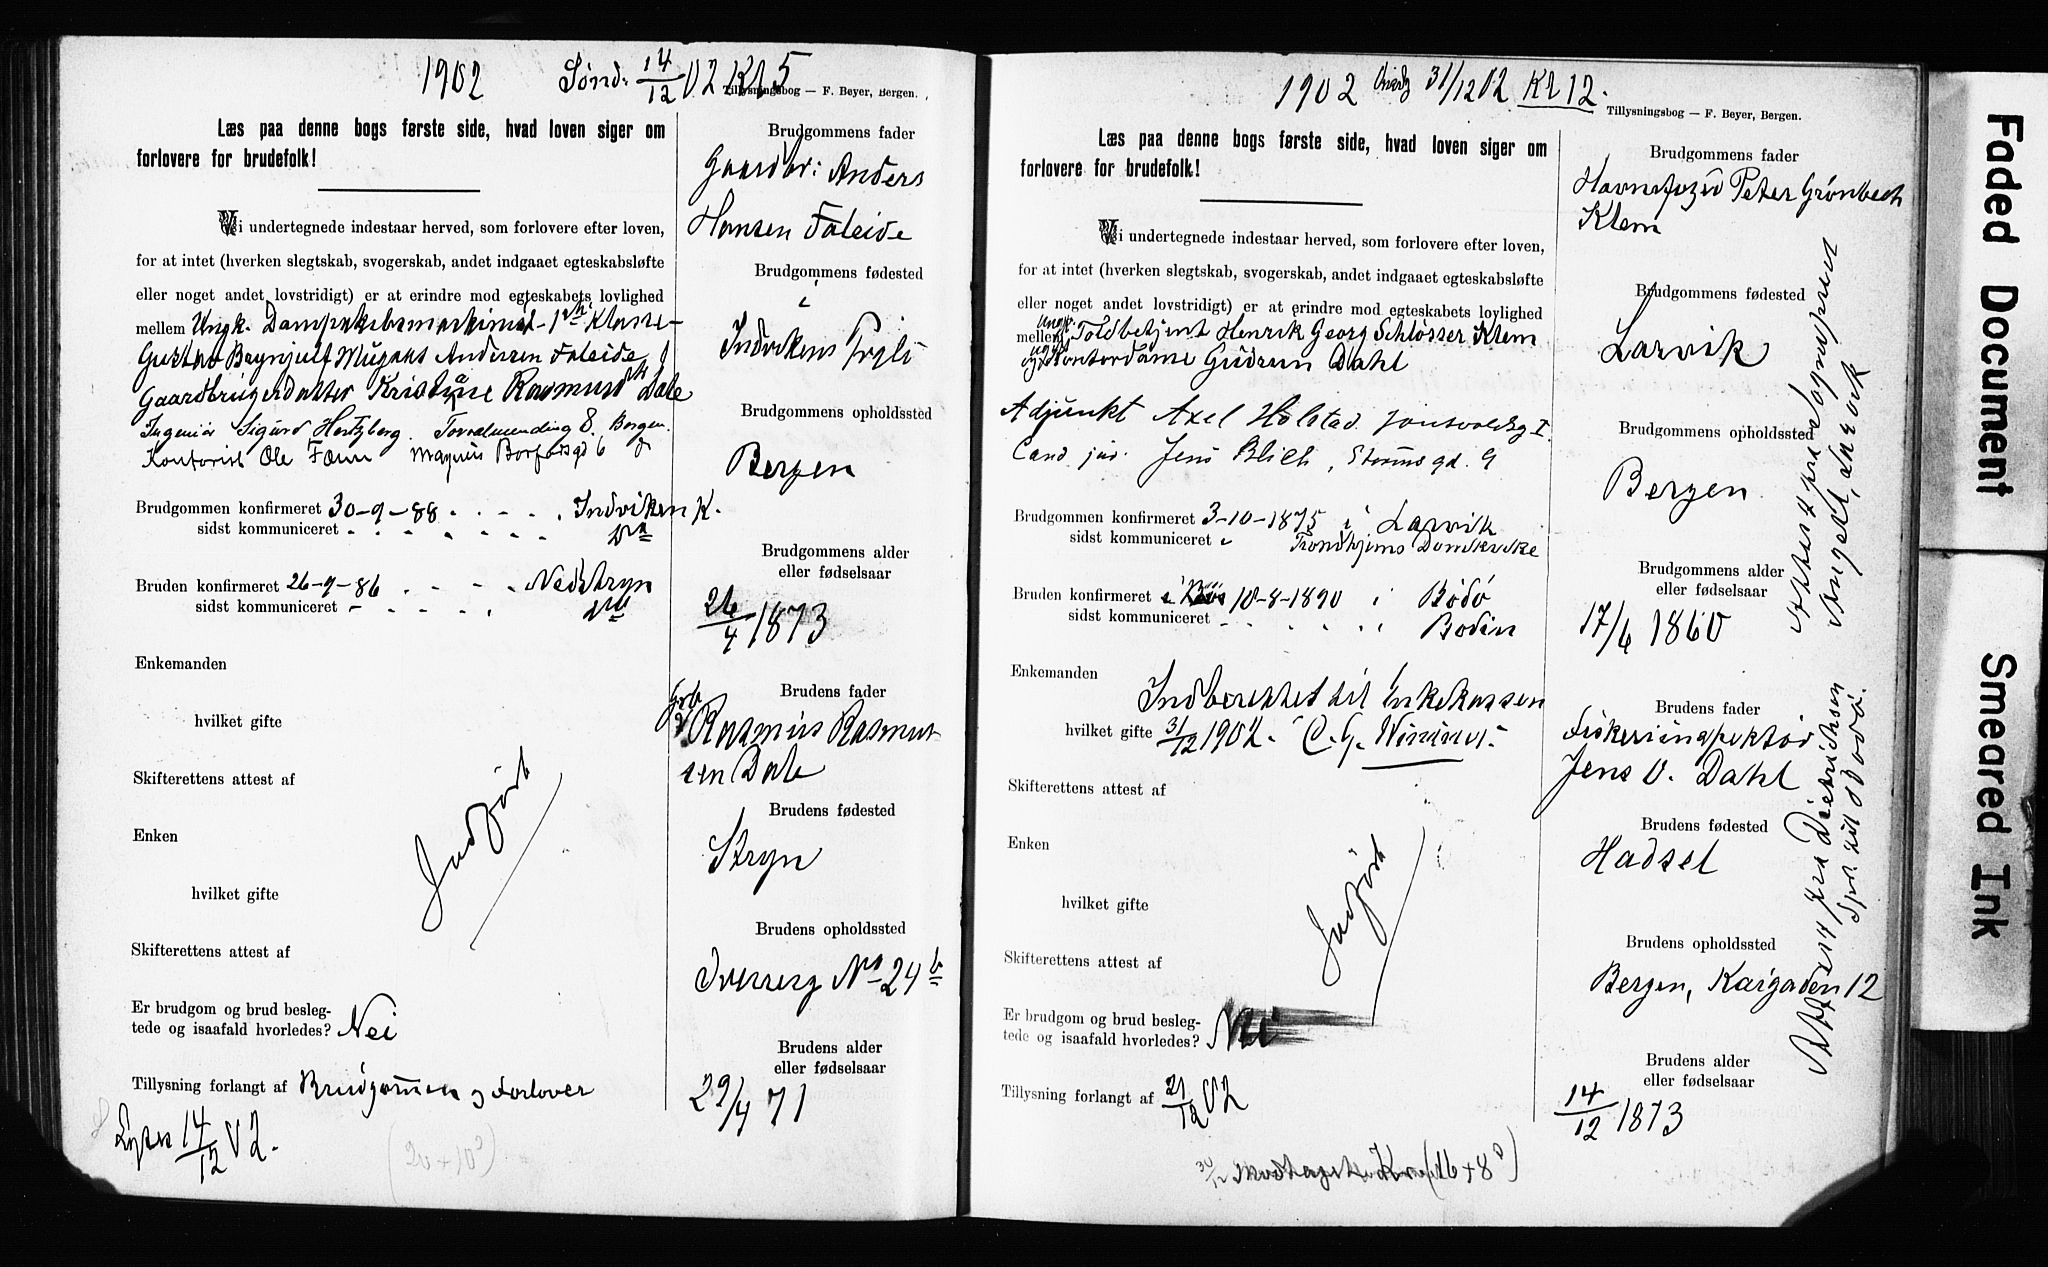 1902 Sønd: 14/12 02 Kl 5
Tillysningsbog — F. Beyer, Bergen.
Læs paa denne bogs første side, hvad loven siger om
forlovere for brudefolk!
Vi undertegnede indestaar herved, som forlovere efter loven,
for at intet (hverken slegtskab, svogerskab, andet indgaaet egteskabsløfte
eller noget andet lovstridigt) er at erindre mod egteskabets lovlighed
mellem Ungk. 1ste Klasse
Gustav Andersen Faleide
Gaardbrugerdatter Rasmusdtr Dale
Ingeniør Sigurd Hertzberg. Torvalmending 8. Bergen.
Kontorist Ole 6
Brudgommen konfirmeret 30-9-88 . . . . . Indviken K.
sidst kommuniceret . . . . . . .
Bruden konfirmeret 26-9-86 . . . . Nedstryn
sidst kommuniceret . . . . .
Enkemanden
hvilket gifte
Skifterettens attest af
Enken
hvilket gifte
Skifterettens attest af
Indført
Er brudgom og brud besleg-
tede og isaafald hvorledes? Nei
Tillysning forlangt af Brudgommen og Forlover
Lyses 14/12 02.
(20+10)
Brudgommens fader
Gaardbr: Anders
Hansen Faleide
Brudgommens fødested
i
Indvikens Prgld
Brudgommens opholdssted
Bergen
Brudgommens alder
eller fødselsaar
26/4 1873
Brudens fader
Grb
Rasmus Rasmus
sen Dale
Brudens fødested
Stryn
Brudens opholdssted
No 24 b
Brudens alder
eller fødselsaar
29/4 71
1902 Onsdg 31/12 02 Kl 12.
Tillysningsbog — F. Beyer, Bergen.
Læs paa denne bogs første side, hvad loven siger om
forlovere for brudefolk!
Vi undertegnede indestaar herved, som forlovere efter loven,
for at intet (hverken slegtskab, svogerskab, andet indgaaet egteskabsløfte
eller noget andet lovstridigt) er at erindre mod egteskabets lovlighed
mellem Ungk. Toldbetjent Henrik Georg Schlösser Klem
og Kontordame Gudrun Dahl
Adjunkt Axel Holstad
Cand. jur. Jens Blich, Stormsgd. 9
Brudgommen konfirmeret 3-10-1875 i Larvik
sidst kommuniceret i Trondhjems Domkirke
Bruden konfirmeret 10-8-1890 i Bodö
sidst kommuniceret . . . . . Bodin
Enkemanden
Indberettet til Enkekassen
hvilket gifte 31/12 1902.
Skifterettens attest af
Enken
hvilket gifte
Skifterettens attest af
Indført
Er brudgom og brud besleg-
tede og isaafald hvorledes? Nei
Tillysning forlangt af 21/12 02
Modtaget Kr (16+8)
Brudgommens fader
Havnefoged Peter Grönbech
Klem
Brudgommens fødested
Larvik
Brudgommens opholdssted
Bergen
Brudgommens alder
eller fødselsaar
17/6 1860
Brudens fader
Fiskeriinspektör
Jens O. Dahl
Brudens fødested
Hadsel
Brudens opholdssted
Bergen, Kaigaden 12
Brudens alder
eller fødselsaar
14/12 1873
Attest fra Sogneprest
Angell, Larvik
Attest fra Diedrichsen
Bodö.
Faded Document
Smeared Ink